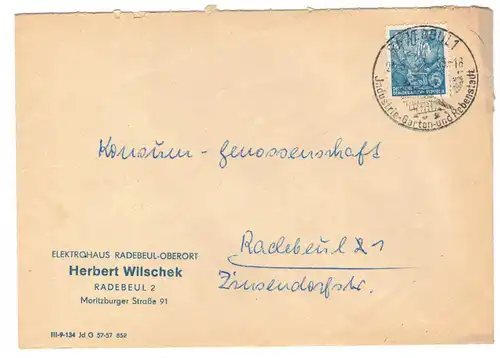 RADEBEUL 1
-18
Industrie-Garten-und Rebenstadt
DEUTSCHE
DEMOKRATISCHE REPUBLIK
Konsum - Genossenschaft
Radebeul 1
Zinsendorfstr.
ELEKTROHAUS RADEBEUL-OBERORT
Herbert Wilschek
RADEBEUL 2
Moritzburger Straße 91
III-9-134 Jd G 57-57 852